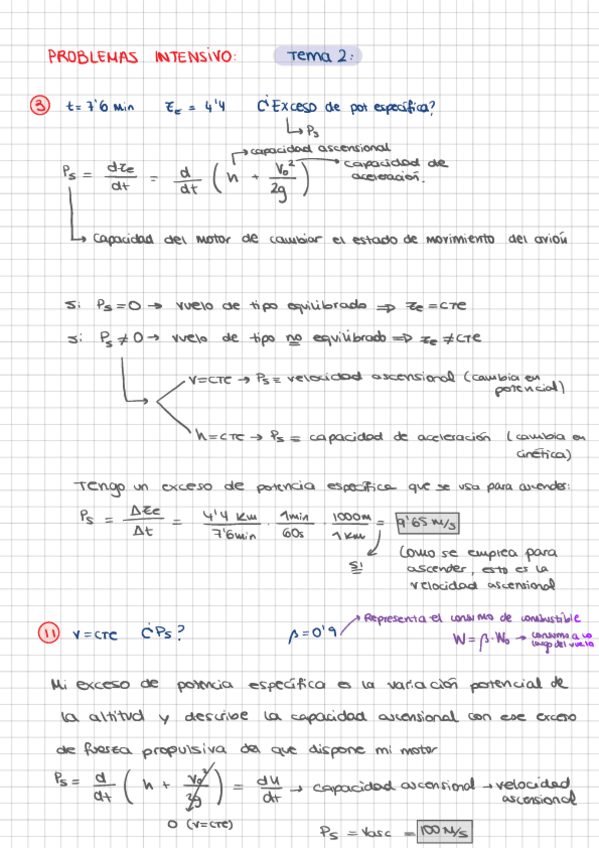 PROBLEMAS INTENSIVO: Tema 2:
③ t=7'6 Min Ze = 4'4 ¿Exceso de pot específica?
↳ Ps
→ capacidad ascensional
Ps = dze/dt = d/dt (h + V₀²/2g) → capacidad de aceleración.
↳ Capacidad del motor de cambiar el estado de movimiento del avión
Si Ps=0 → vuelo de tipo equilibrado ⇒ ze=CTE
Si Ps≠0 → vuelo de tipo no equilibrado ⇒ ze≠CTE
V=CTE → Ps = velocidad ascensional (cambia en potencial)
h=CTE → Ps = capacidad de aceleración (cambia en cinética)
Tengo un exceso de potencia específica que se usa para ascender:
Ps = Δze/Δt = 4'4 Km/7'6min · 1min/60s · 1000m/1Km = 9'65 m/s
SI
Como se emplea para
ascender, esto es la
velocidad ascensional
⑪ V=CTE ¿Ps? β=0'9 → Representa el consumo de combustible
W=β·W₀ → consumo a lo largo del vuelo
Mi exceso de potencia específica es la variación potencial de
la altitud y describe la capacidad ascensional con ese exceso
de fuerza propulsiva del que dispone mi motor
Ps = d/dt (h + V₀²/2g) = dh/dt → capacidad ascensional → velocidad ascensional
0 (V=CTE)
Ps = Vasc = 100 m/s